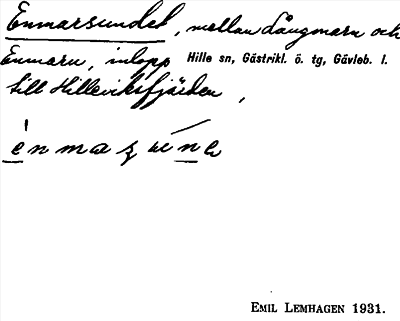 Enmarsundet, mellan Långmarn och
Enmarn, inlopp Hille sn, Gästrikl. ö. tg, Gävleb. l.
till Hilleviksfjärden,
EMIL LEMHAGEN 1931.